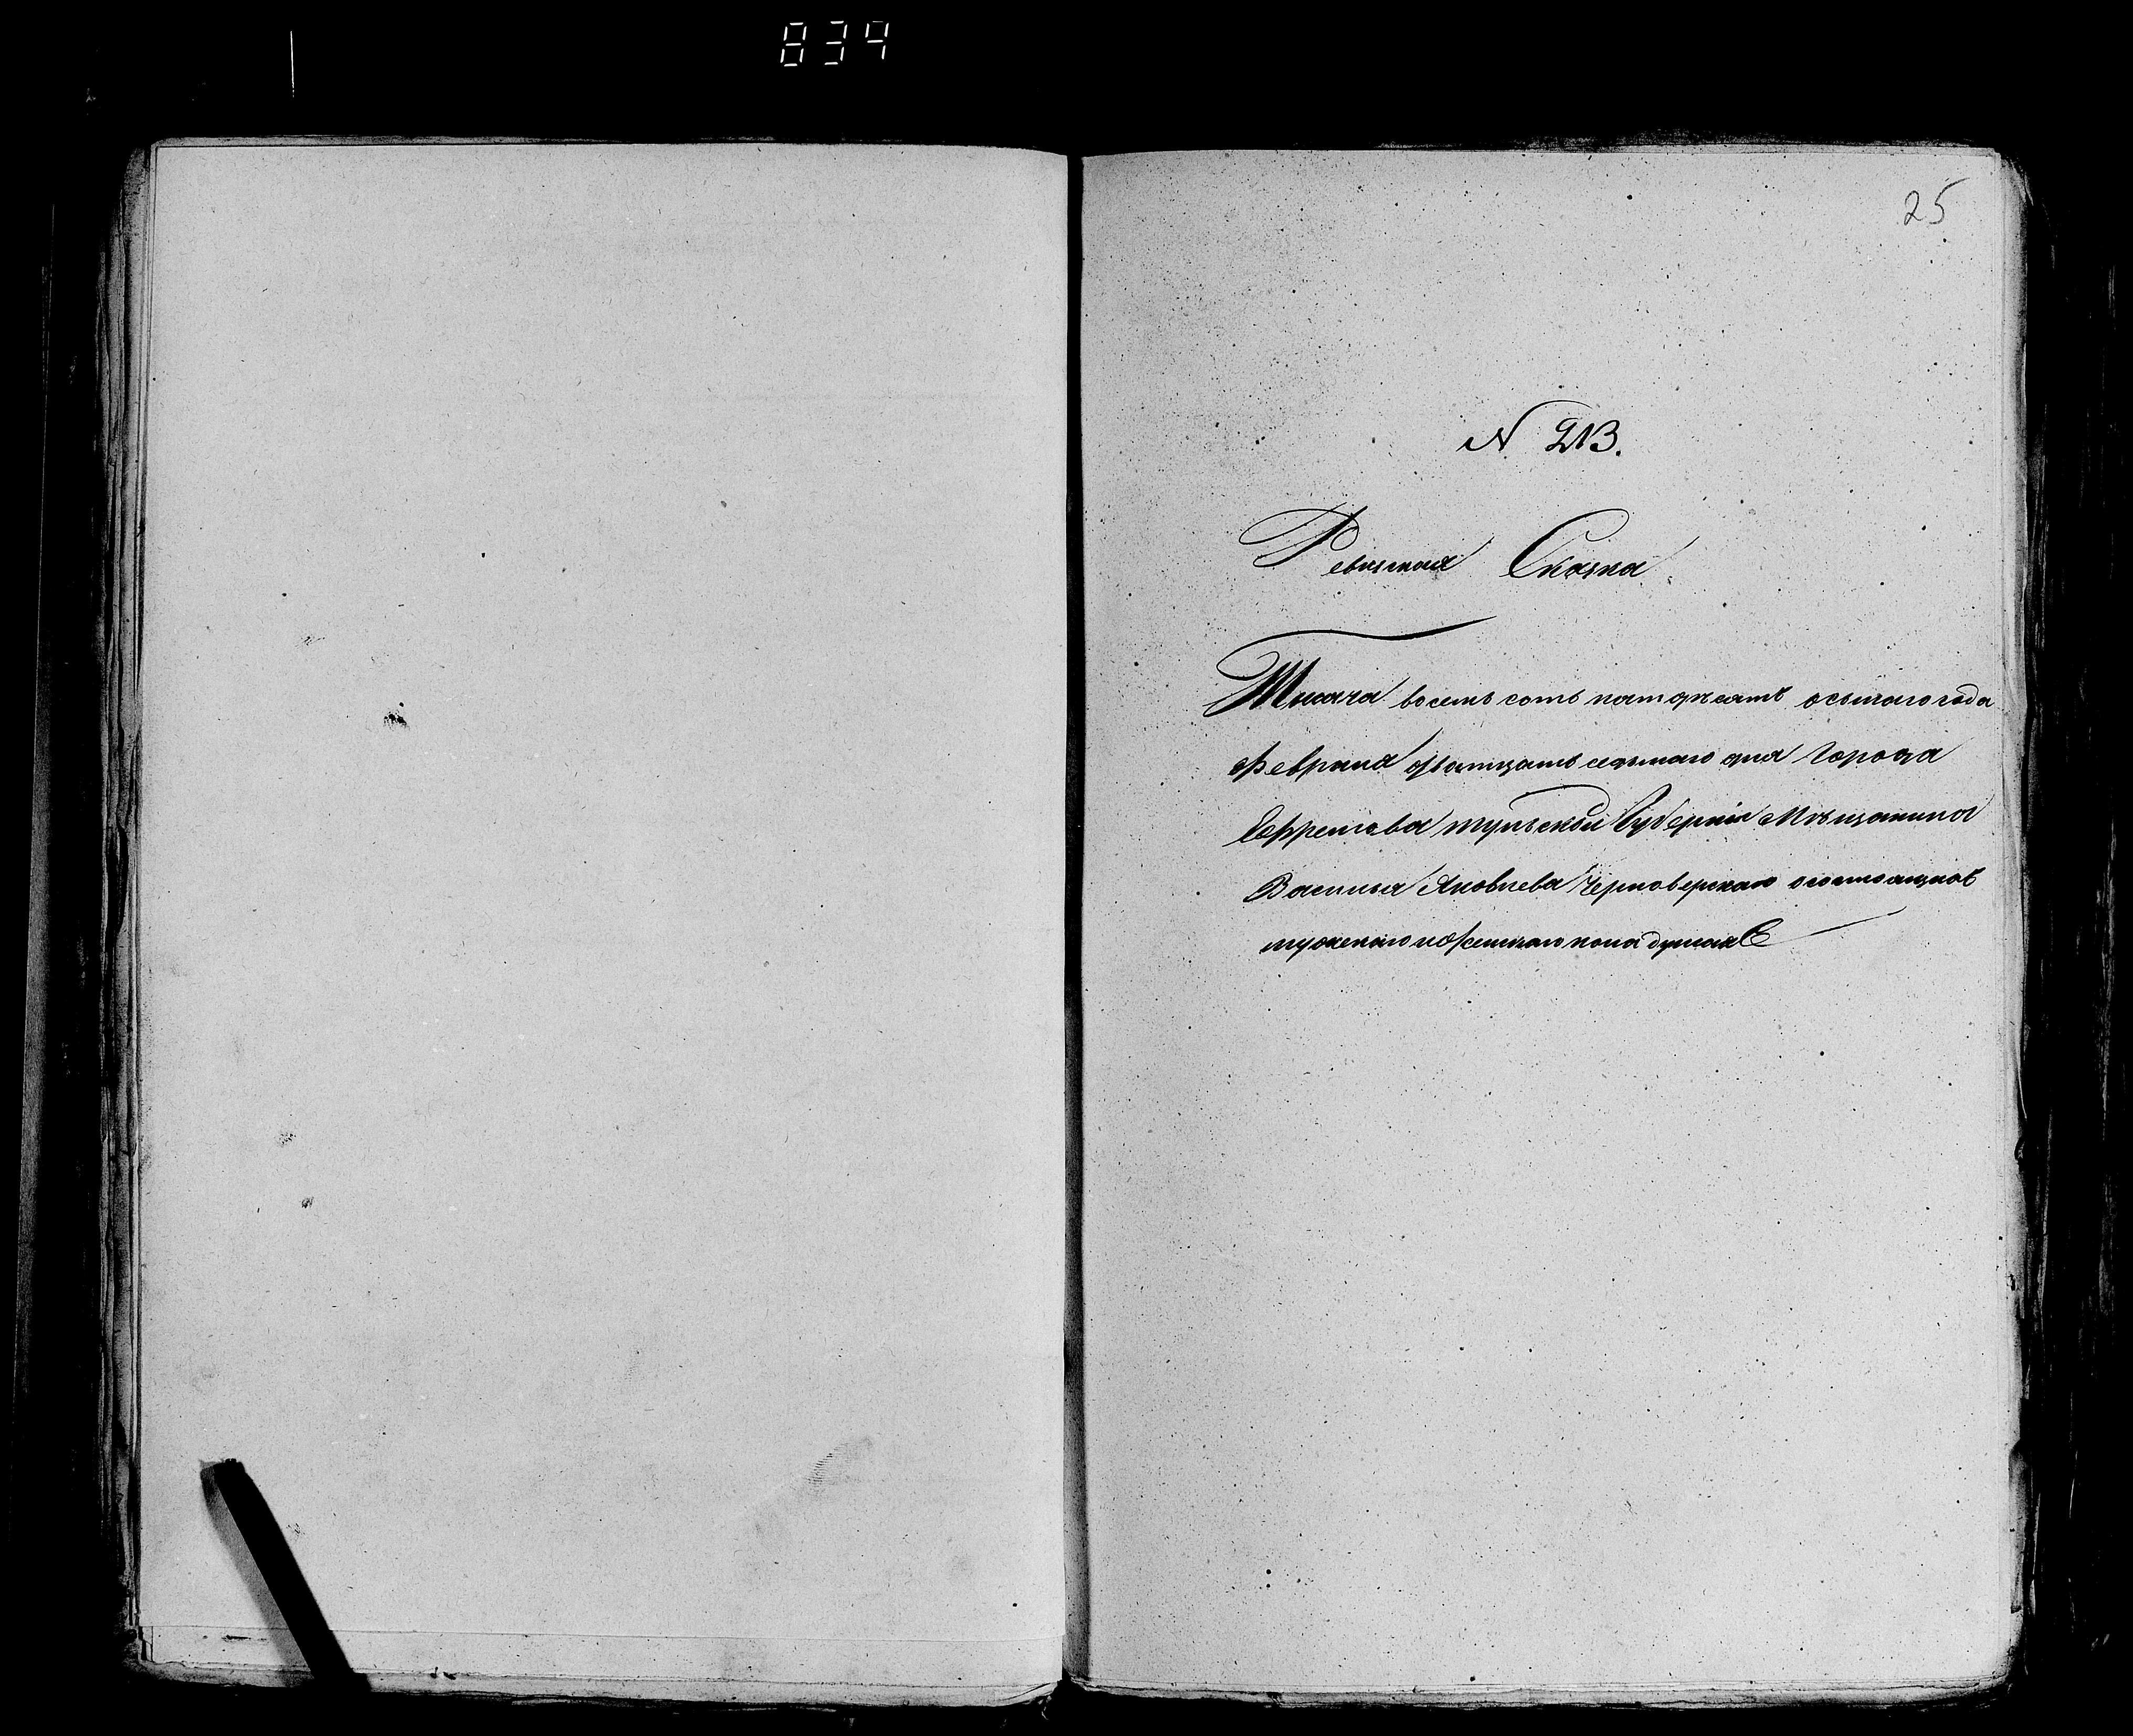 834
25
N 213.
Ревизская Сказка.
Тысяча восемь сотъ пятдѣсятъ осьмаго года
Февраля дватцать седьмаго дня Города
Ефремова тульской Губерніи Мѣщанина
Василья Яковлева о состоящихъ
мужескаго и женскаго пола душахъ